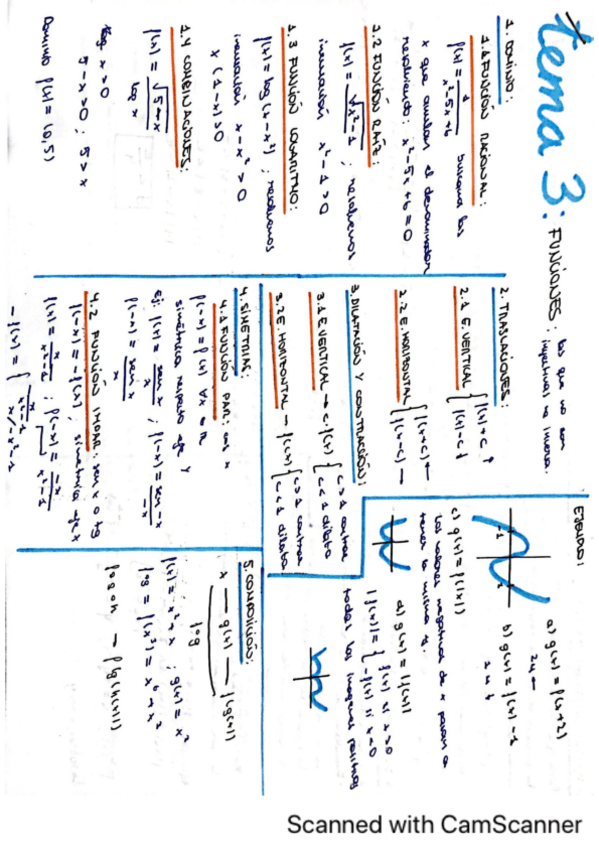 tema 3: FUNCIONES: las que no son
inyectivas no inversa.
1. DOMINIO:
1.1 FUNCIÓN RACIONAL:
f(x) = 1 / x²-5x+6 buscamos los
x que anulan el denominador
resolviendo: x²-5x+6=0
1.2 FUNCIÓN RAÍZ:
f(x) = √x²-1 ; resolvemos
inecuación x²-1>0
1.3 FUNCIÓN LOGARITMO:
f(x) = log(x-x²) ; resolvemos
inecuación x-x²>0
x(1-x)>0
1.4 COMBINACIONES:
f(x) = √5-x / log x
log x>0
5-x>0 ; 5>x
Dominio f(x) = (0,5)
2. TRASLACIONES:
2.1 E. VERTICAL { f(x)+c ↑
f(x)-c ↓
2.2 E. HORIZONTAL { f(x+c) ←
f(x-c) →
3. DILATACIÓN Y CONTRACCIÓN:
3.1 E. VERTICAL → c·f(x) { c>1 contrae
c<1 dilata
3.2 E. HORIZONTAL → f(cx) { c>1 contrae
c<1 dilata
4. SIMETRÍAS:
4.1 FUNCIÓN PAR: cos x
f(-x) = f(x) ∀x ∈ R
simétrica respecto eje y
Ej: f(x) = sen x / x ; f(-x) = sen -x / -x
f(-x) = sen x / x
4.2 FUNCIÓN IMPAR: sen x o tg
f(-x) = -f(x) ; simetría eje x
f(x) = x / x²-1 ; f(-x) = -x / x²-1
EJEMPLO:
a) g(x) = f(x+2)
2u ←
b) g(x) = f(x)-1
1u ↓
c) g(x) = f(|x|)
los valores negativos de x pasan a
tener la misma
d) g(x) = |f(x)|
|f(x)| = { f(x) si x>0
-f(x) si x<0
todas las imágenes positivas
5. COMPOSICIÓN:
x → g(x) → f(g(x))
fog
f(x) = x³+x ; g(x) = x²
fog = f(x²) = x⁶+x²
fogoh → f(g(h(x)))
Scanned with CamScanner